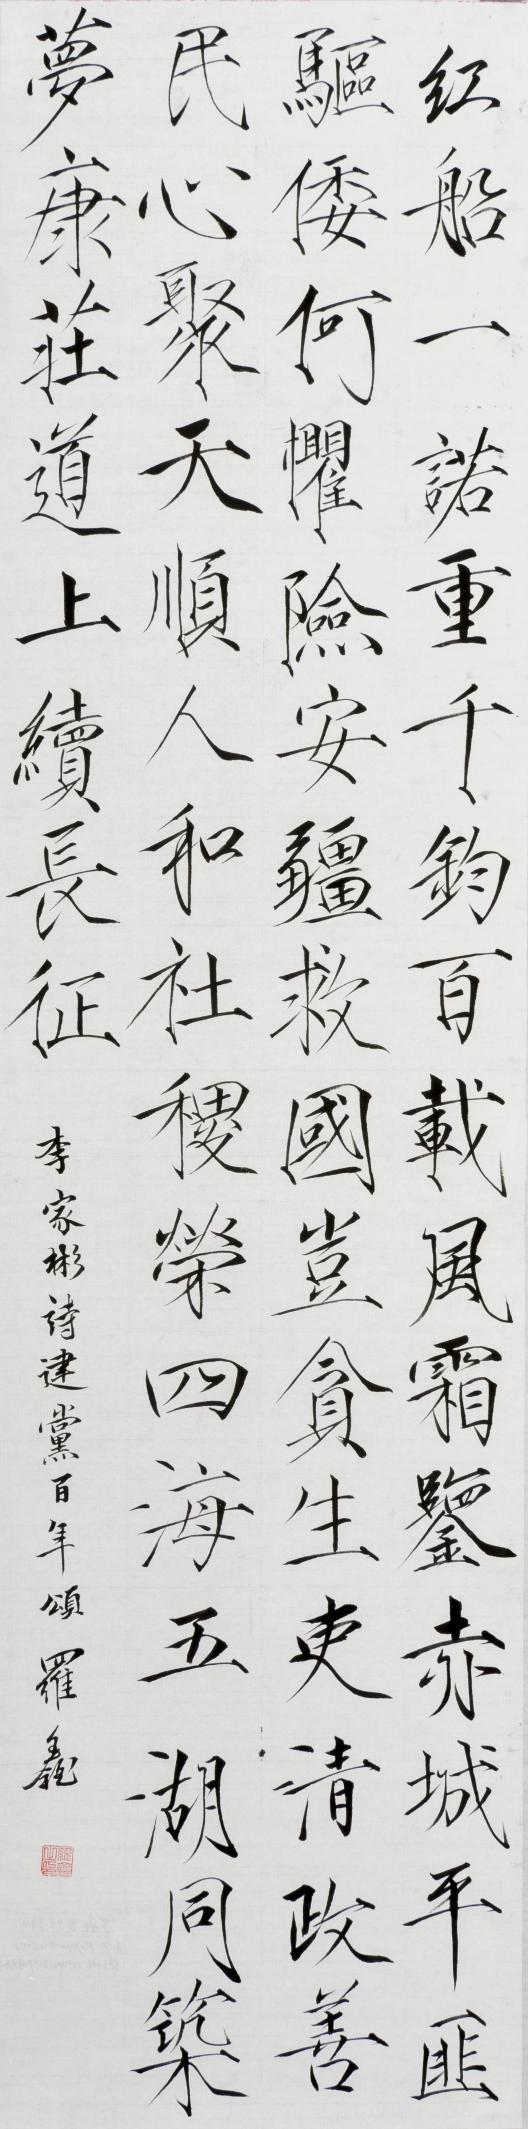 红船一諾重千鈞百載風霜鑒赤城平匪
驅倭何懼險安疆救國豈貪生吏清政善
民心聚天順人和社稷榮四海五湖同築
夢康莊道上續長征
李家彬詩建黨百年頌 羅